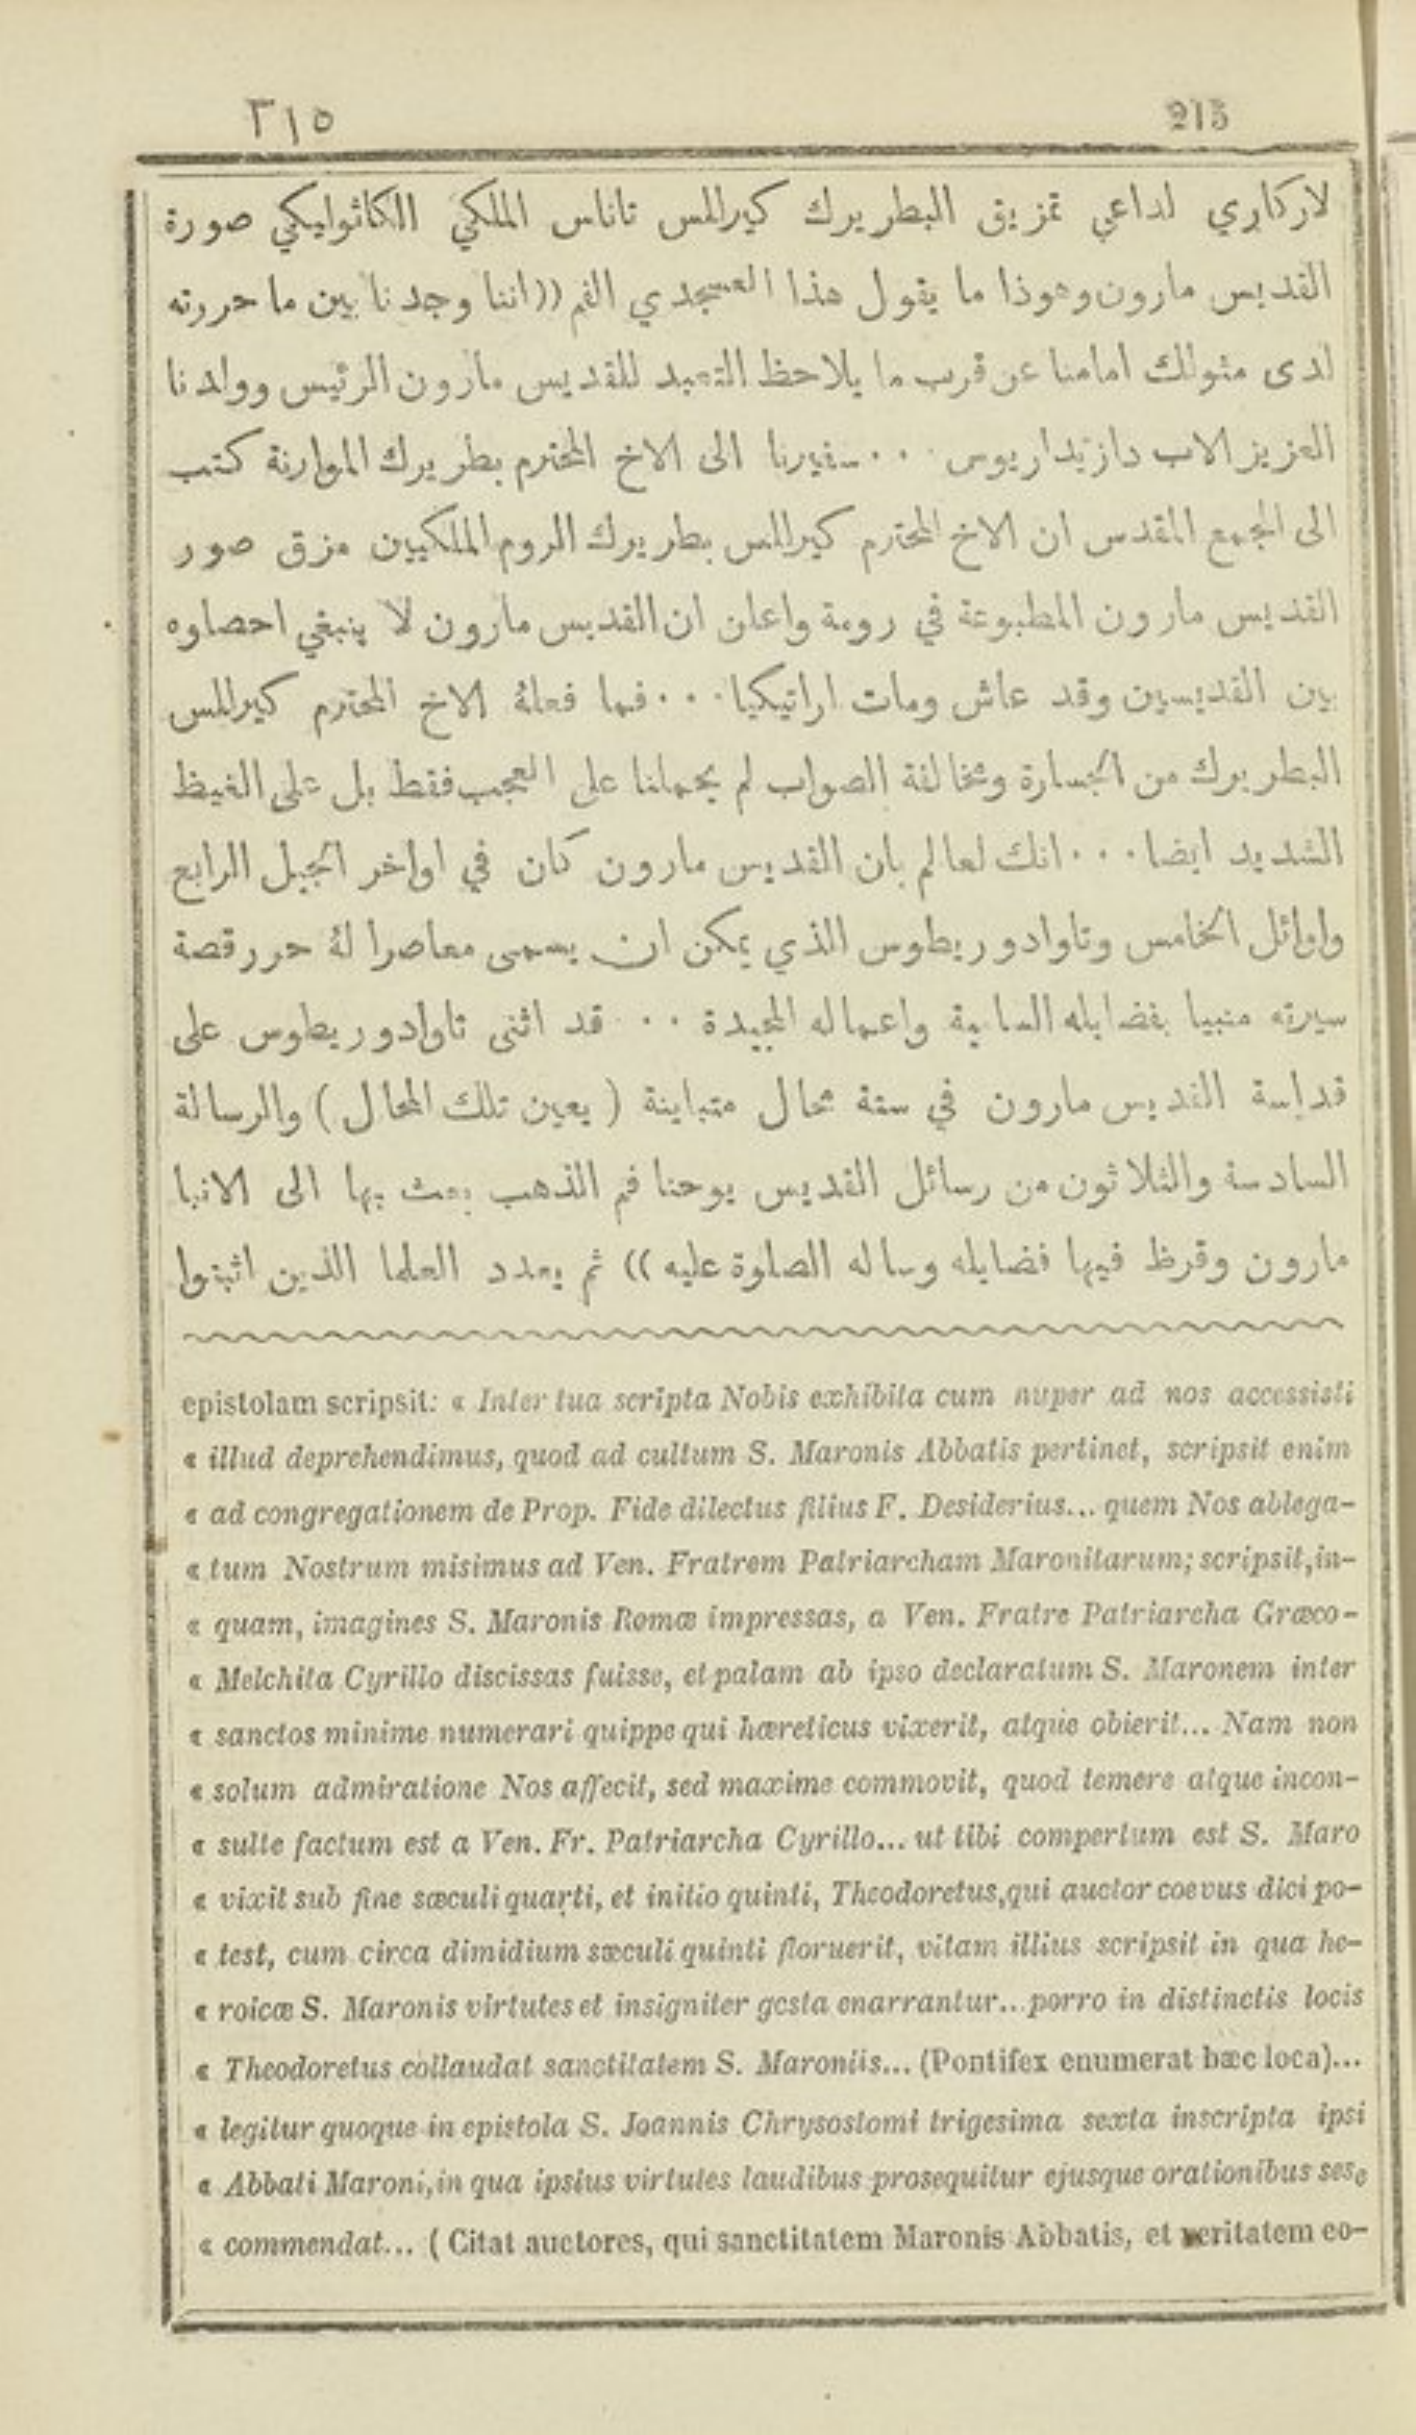 ٣١٥ 215
لاركاري لداعي تمزيق البطريرك كيرللس تاناس الملكي الكاثوليكي صورة
القديس مارون وهوذا ما يقول هذا العسجدي الفم ((اننا وجدنا بين ما حررته
لدى مثولك امامنا عن قرب ما يلاحظ التعبد للقديس مارون الرئيس وولدنا
العزيز الاب دازيداريوس ٠٠٠ سفيرنا الى الاخ المحترم بطريرك الموارنة كتب
الى المجمع المقدس ان الاخ المحترم كيرللس بطريرك الروم الملكيين مزق صور
القديس مارون المطبوعة في رومة واعلن ان القديس مارون لا ينبغي احصاوه
بين القديسين وقد عاش ومات اراتيكيا ٠٠٠ فما فعلهُ الاخ المحترم كيرللس
البطريرك من الجسارة ومخالفة الصواب لم يحملنا على العجب فقط بل على الغيظ
الشديد ايضا ٠٠٠ انك لعالم بان القديس مارون كان في اواخر الجيل الرابع
واوائل الخامس وتاوادوريطوس الذي يمكن ان يسمى معاصرا لهُ حرر قصة
سيرته منبيا بفضايله السامية واعماله المجيدة ٠٠٠ قد اثنى تاوادوريطوس على
قداسة القديس مارون في ستة محال متباينة ( يعين تلك المحال ) والرسالة
السادسة والثلاثون من رسائل القديس يوحنا فم الذهب بعث بها الى الانبا
مارون وقرظ فيها فضايله وساله الصلوة عليه )) ثم يعدد العلما الذين اثبتوا
epistolam scripsit: « Inter tua scripta Nobis exhibita cum nuper ad nos accessisti
« illud deprehendimus, quod ad cultum S. Maronis Abbatis pertinet, scripsit enim
« ad congregationem de Prop. Fide dilectus filius F. Desiderius... quem Nos ablega-
« tum Nostrum misimus ad Ven. Fratrem Patriarcham Maronitarum; scripsit, in-
« quam, imagines S. Maronis Romæ impressas, a Ven. Fratre Patriarcha Græco-
« Melchita Cyrillo discissas fuisse, et palam ab ipso declaratum S. Maronem inter
« sanctos minime numerari quippe qui hæreticus vixerit, atque obierit... Nam non
« solum admiratione Nos affecit, sed maxime commovit, quod temere atque incon-
« sulte factum est a Ven. Fr. Patriarcha Cyrillo... ut tibi compertum est S. Maro
« vixit sub fine sæculi quarti, et initio quinti, Theodoretus, qui auctor coevus dici po-
« test, cum circa dimidium sæculi quinti floruerit, vitam illius scripsit in qua he-
« roicæ S. Maronis virtutes et insigniter gesta enarrantur... porro in distinctis locis
« Theodoretus collaudat sanctitatem S. Maroniis... (Pontifex enumerat hæc loca)...
« legitur quoque in epistola S. Joannis Chrysostomi trigesima sexta inscripta ipsi
« Abbati Maroni, in qua ipsius virtutes laudibus prosequitur ejusque orationibus sese
« commendat... ( Citat auctores, qui sanctitatem Maronis Abbatis, et veritatem eo-